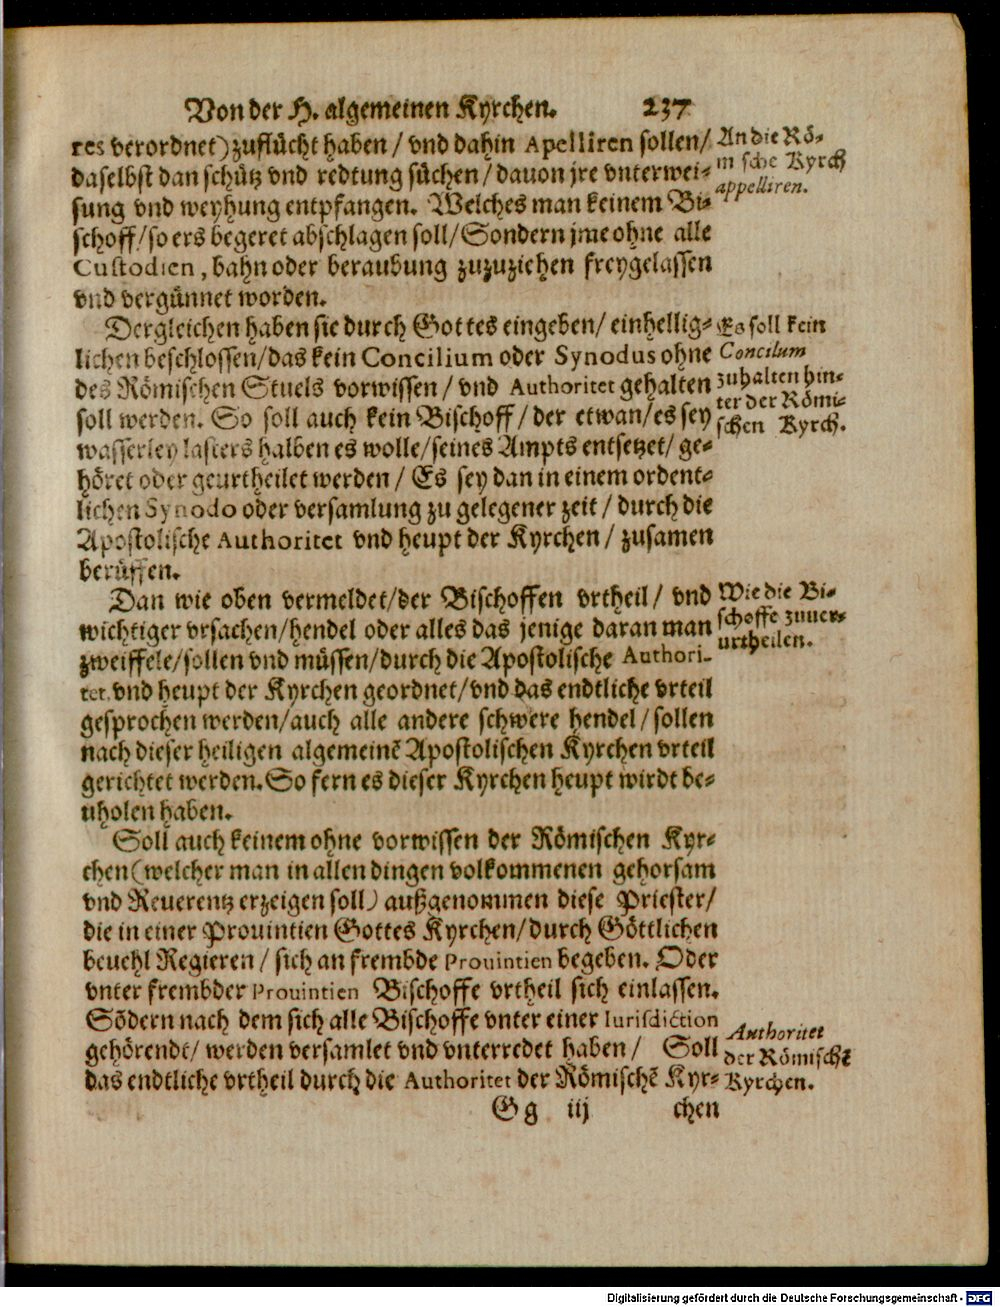 Von der H. algemeinen Kyrchen. 237
res verordnet) zuflücht haben / vnd dahin Apelliren sollen/
daselbst dan schütz vnd redtung süchen / dauon jre vnterwei-
sung vnd weyhung entpfangen. Welches man keinem Bi-
schoff/so ers begeret abschlagen soll/Sondern jme ohne alle
Custodien, bahn oder beraubung zuzuziehen freygelassen
vnd vergünnet worden.
An die Rö-
misshe Kyrch
appelliren.
Dergleichen haben sie durch Gottes eingeben/ einhellig-
lichen beschlossen/das kein Concilium oder Synodus ohne
des Römischen Stuels vorwissen / vnd Authoritet gehalten
soll werden. So soll auch kein Bischoff / der etwan/es sey
wasserley lasters halben es wolle/seines Ampts entsetzet/ ge-
höret oder geurtheilet werden / Es sey dan in einem ordent-
lichen Synodo oder versamlung zu gelegener zeit / durch die
Apostolische Authoritet vnd heupt der Kyrchen / zusamen
berüffen.
Es soll kein
Concilum
zuhalten hin-
ter der Römi-
schen Kyrch.
Dan wie oben vermeldet/der Bischoffen vrtheil / vnd
wichtiger vrsachen/hendel oder alles das jenige daran man
zweiffele/sollen vnd müssen/durch die Apostolische Authori-
tet vnd heupt der Kyrchen geordnet/vnd das endtliche vrteil
gesprochen werden/auch alle andere schwere hendel / sollen
nach dieser heiligen algemeinē Apostolischen Kyrchen vrteil
gerichtet werden. So fern es dieser Kyrchen heupt wirdt be-
uholen haben.
Wie die Bi-
schoffe zuuer-
urtheilen.
Soll auch keinem ohne vorwissen der Römischen Kyr-
chen (welcher man in allen dingen volkommenen gehorsam
vnd Reuerentz erzeigen soll) außgenommen diese Priester/
die in einer Prouintien Gottes Kyrchen/durch Göttlichen
beuehl Regieren / sich an frembde Prouintien begeben. Oder
vnter frembder Prouintien Bischoffe vrtheil sich einlassen.
Sōdern nach dem sich alle Bischoffe vnter einer Iurisdiction
gehörendt/ werden versamlet vnd vnterredet haben / Soll
das endtliche vrtheil durch die Authoritet der Römischē Kyr-
Authoritet
der Römischē
Kyrchen.
Gg iij chen
Digitalisierung gefördert durch die Deutsche Forschungsgemeinschaft - DFG